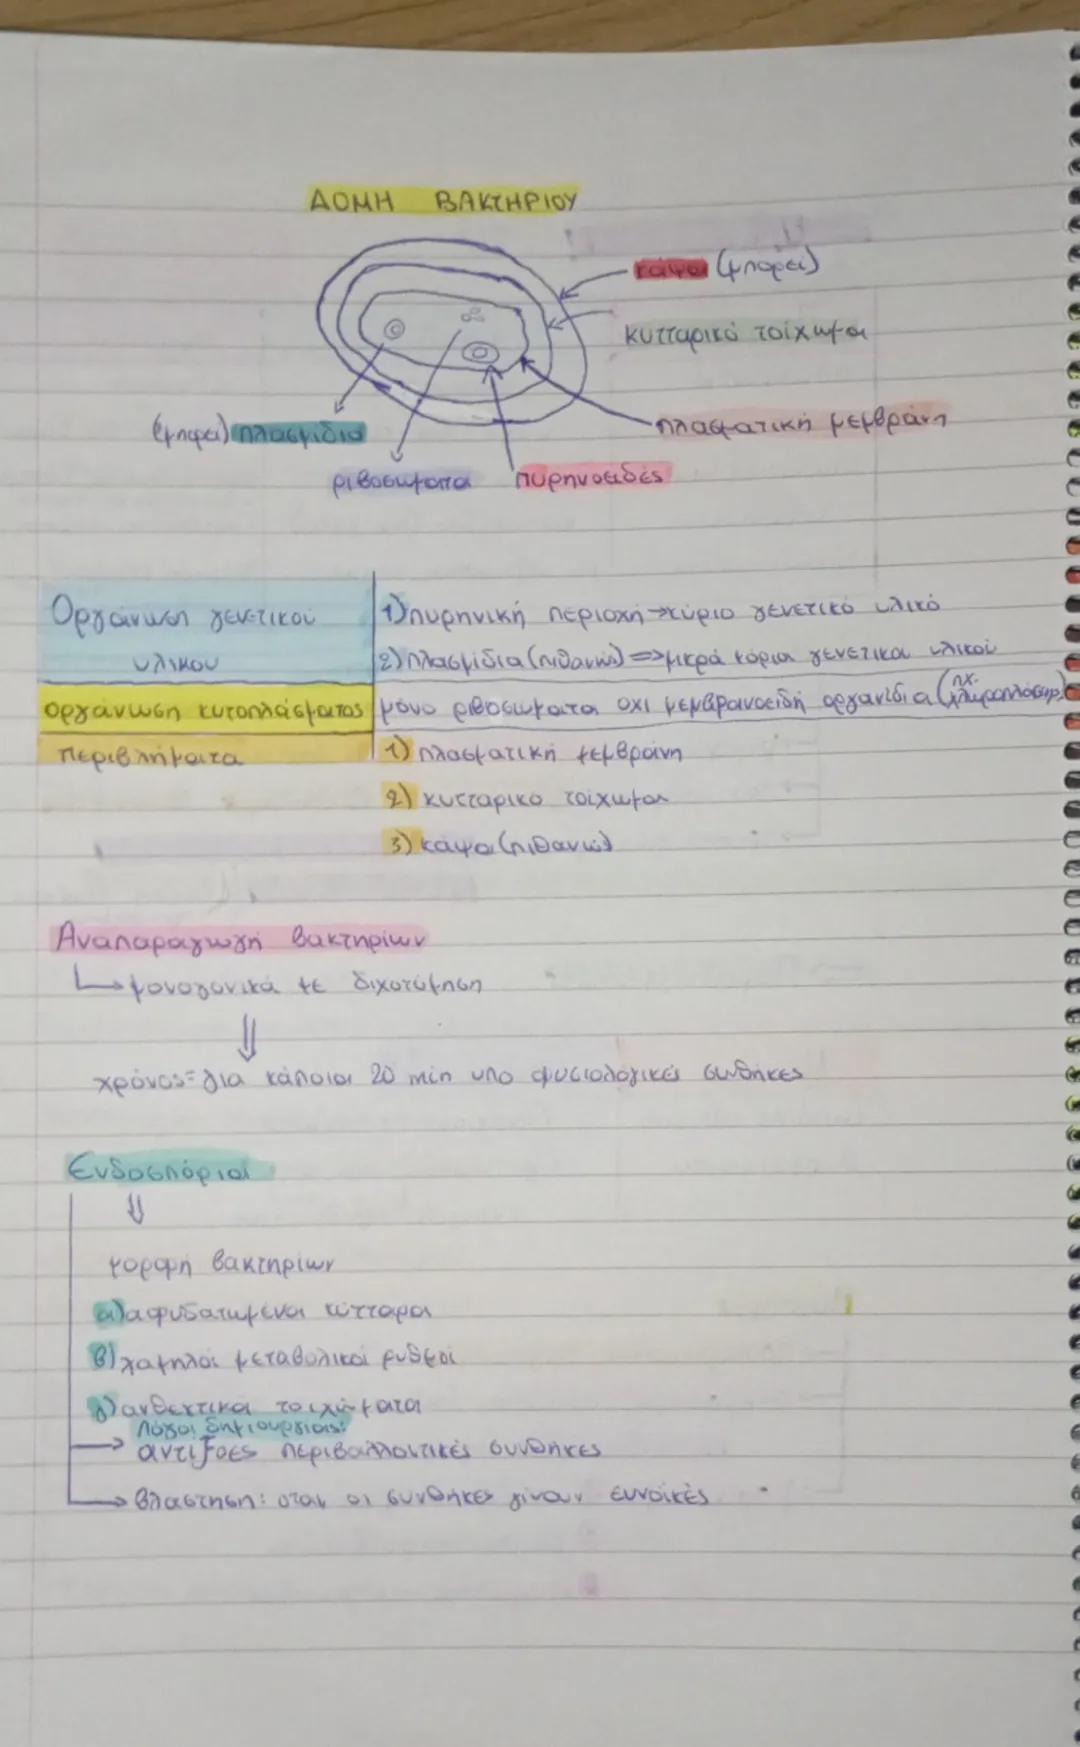 ΔΟΜΗ ΒΑΚΤΗΡΙΟΥ
κάψα (μπορεί)
κυτταρικό τοίχωμα
(μπορεί) πλασμίδια
πλασματική μεμβράνη
ριβοσώματα
πυρηνοειδές
Οργάνωση γενετικού υλικού
1) πυρηνική περιοχή → κύριο γενετικό υλικό
2) πλασμίδια (πιθανώς) => μικρά κυρία γενετικού υλικού
οργάνωση κυτοπλάσματος
μόνο ριβοσώματα οχι μεμβρανοειδή οργανίδια (πχ.
περιβλήματα
1) πλασματική μεμβράνη
2) κυτταρικο τοίχωμα
3) κάψα (πιθανώς)
Αναπαραγωγή βακτηρίων
μονογονικά με διχοτόμηση
χρόνος = για κάποια 20 min υπο φυσιολογικές συνθήκες
Ενδοσπόρια
μορφή βακτηρίων
α) αφυδατωμένα κύτταρα
β) χαμηλοί μεταβολικοί ρυθμοί
γ) ανθεκτικά τοιχώματα
Λόγοι δημιουργίας:
αντίξοες περιβαλλοντικές συνθήκες
βλάστηση: όταν οι συνθήκες γίνουν ευνοϊκές